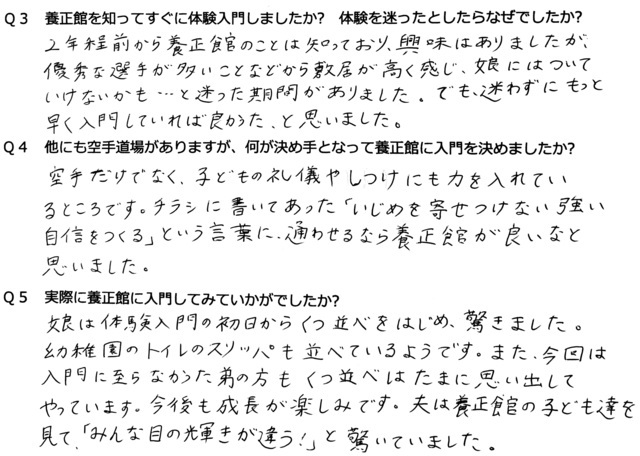 Q3 養正館を知ってすぐに体験入門しましたか? 体験を迷ったとしたらなぜでしたか?
2年程前から養正館のことは知っており、興味はありましたが、
優秀な選手が多いことなどから敷居が高く感じ、娘にはついて
いけないかも…と迷った期間がありました。でも、迷わずにもっと
早く入門していれば良かった、と思いました。
Q4 他にも空手道場がありますが、何が決め手となって養正館に入門を決めましたか?
空手だけでなく、子どもの礼儀やしつけにも力を入れてい
るところです。チラシに書いてあった「いじめを寄せつけない強い
自信をつくる」という言葉に、通わせるなら養正館が良いなと
思いました。
Q5 実際に養正館に入門してみていかがでしたか?
娘は体験入門の初日からくつ並べをはじめ、驚きました。
幼稚園のトイレのスリッパも並べているようです。また、今回は
入門に至らなかった弟の方もくつ並べはたまに思い出して
やっています。今後も成長が楽しみです。夫は養正館の子ども達を
見て、「みんな目の輝きが違う!」と驚いていました。